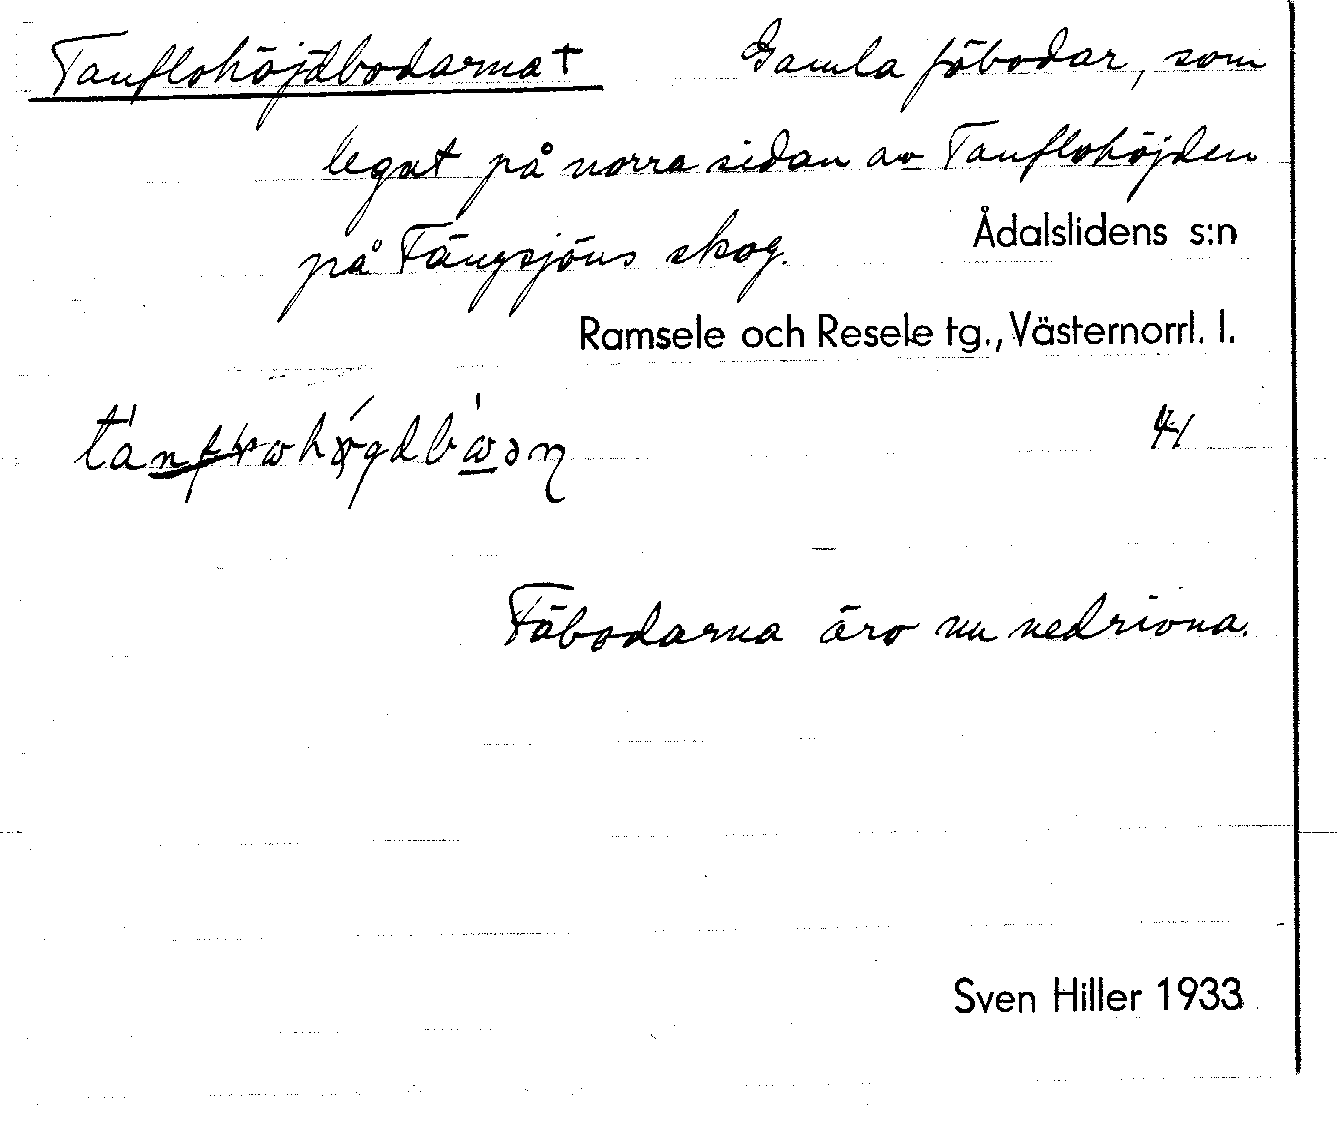 Tanflohöjdbodarna † Gamla fäbodar, som
legat på norra sidan av Tanflohöjden
på Tängsjöns skog.
Ådalslidens s:n
Ramsele och Resele tg., Västernorrl. l.
41
Fäbodarna äro nu nedrivna.
Sven Hiller 1933